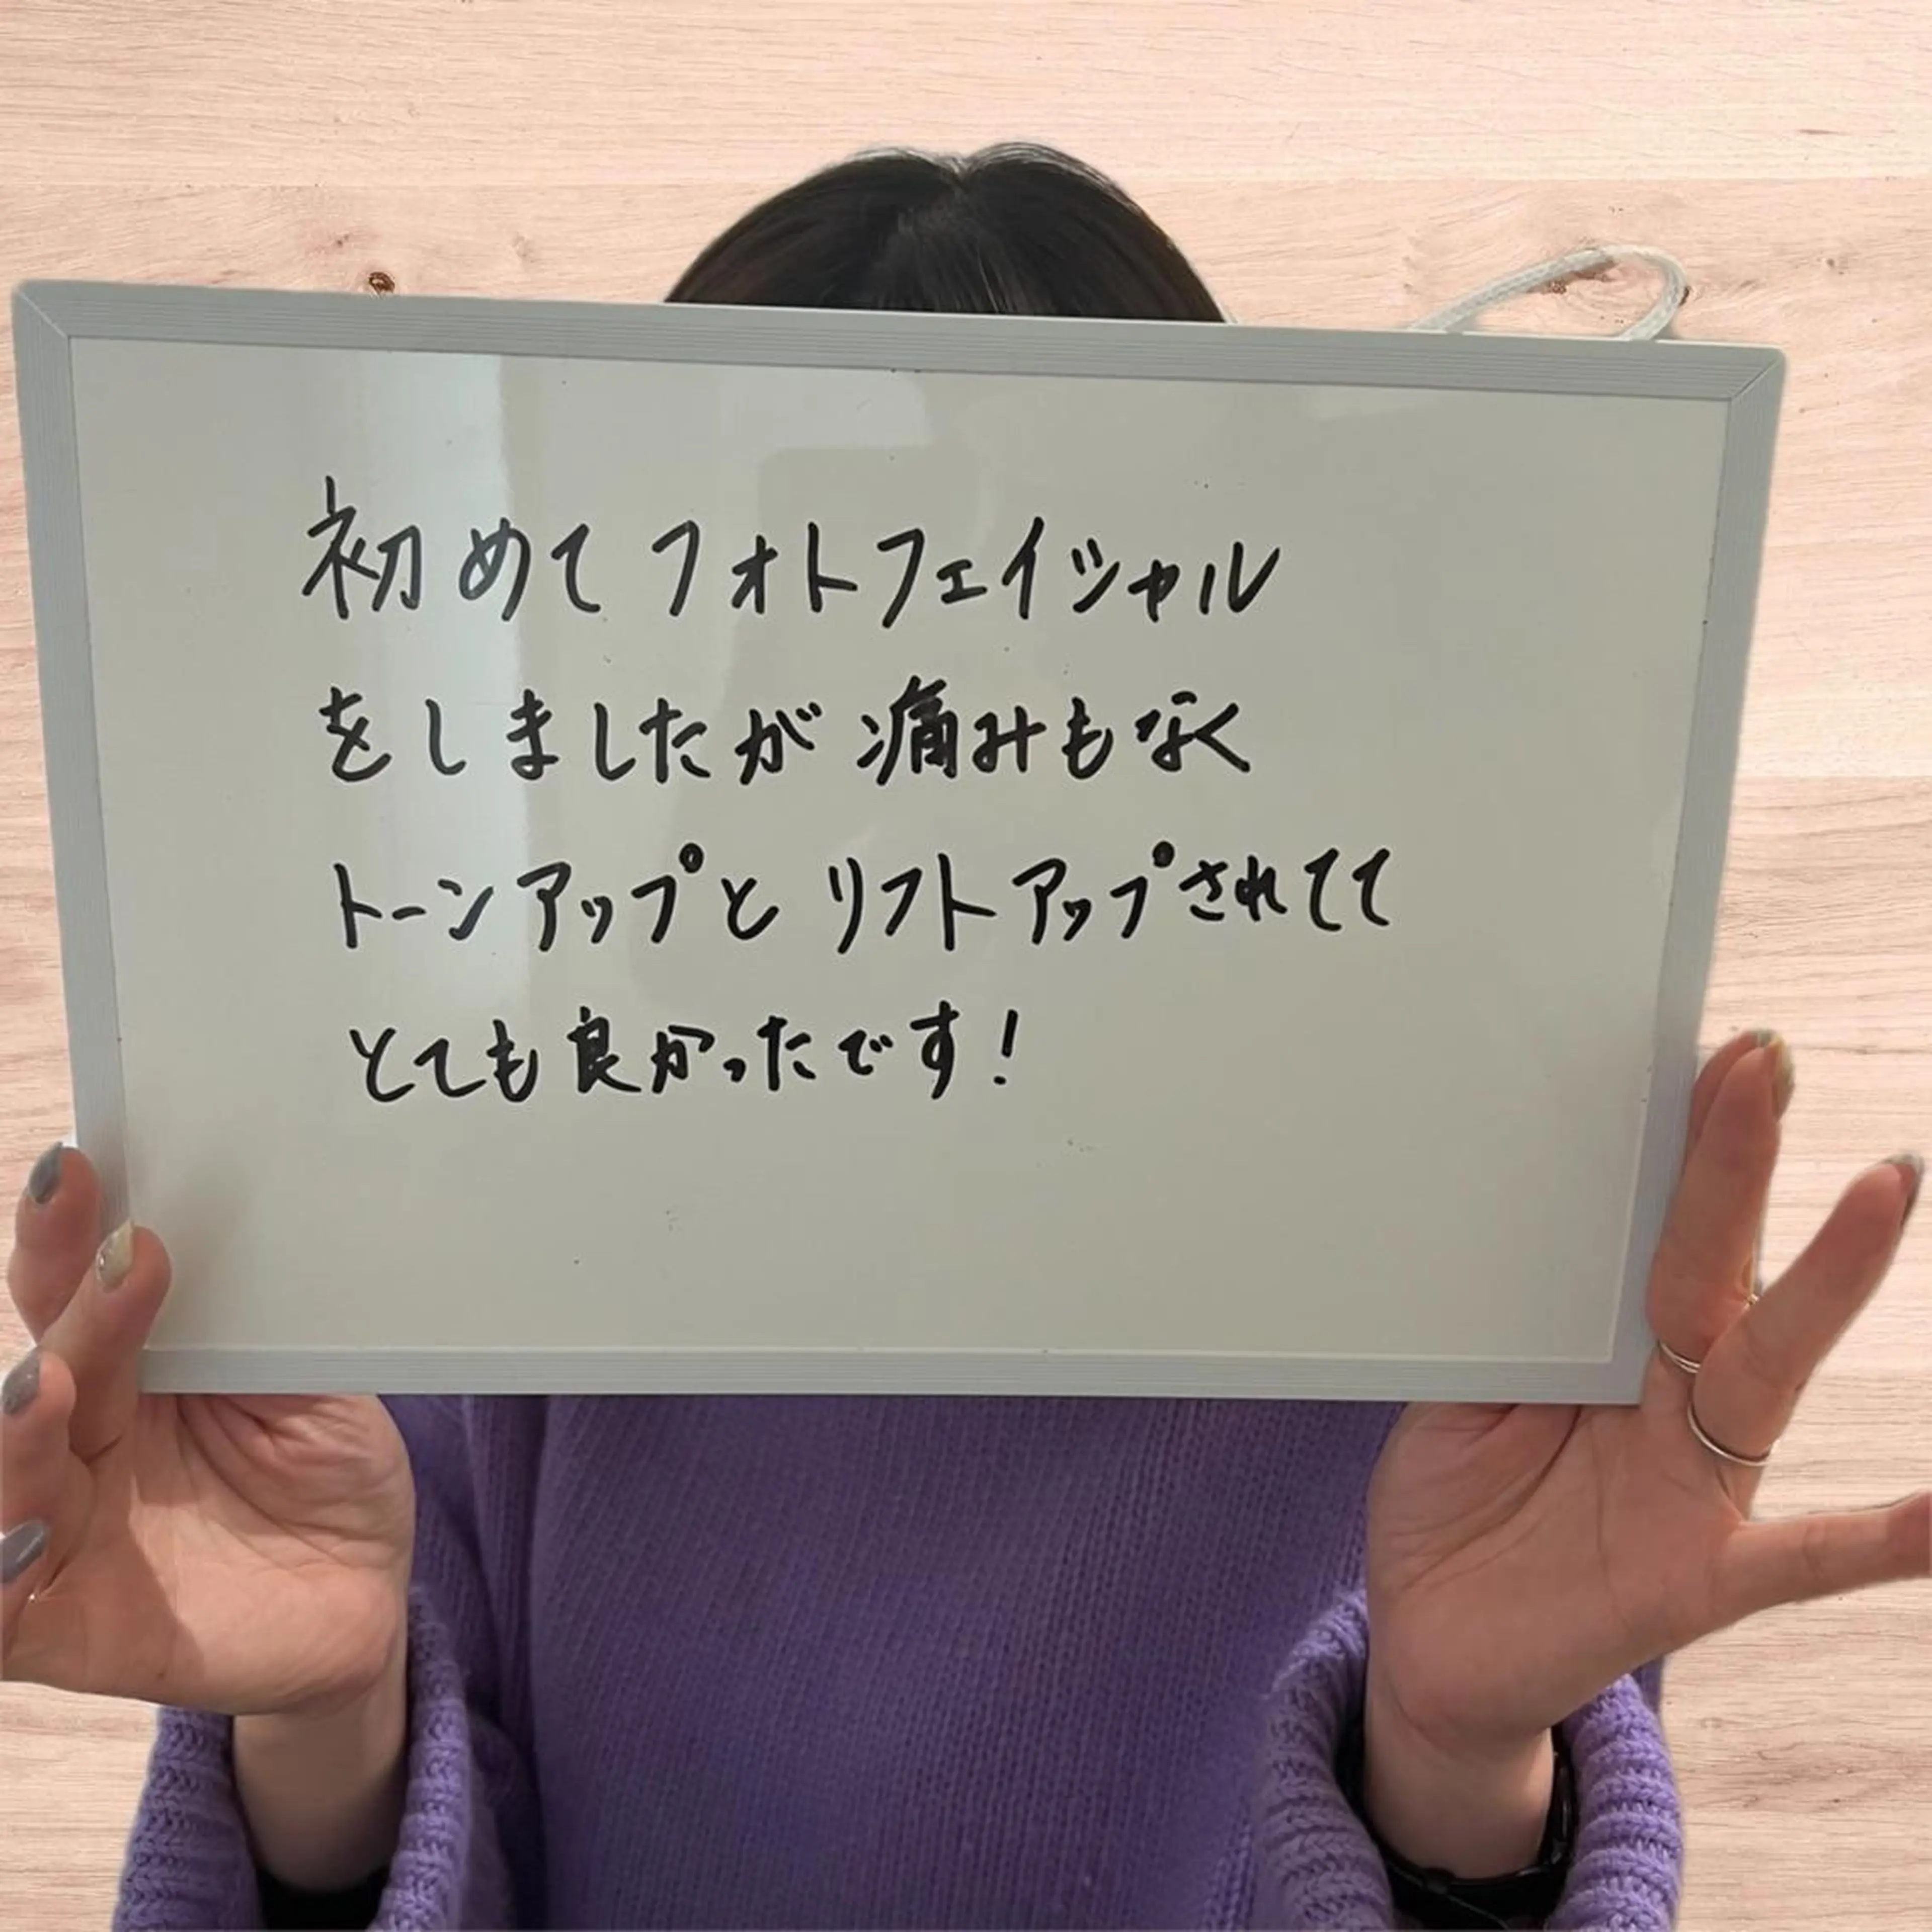 初めてフォトフェイシャル
をしましたが痛みもなく
トーンアップとリフトアップされてて
とても良かったです!